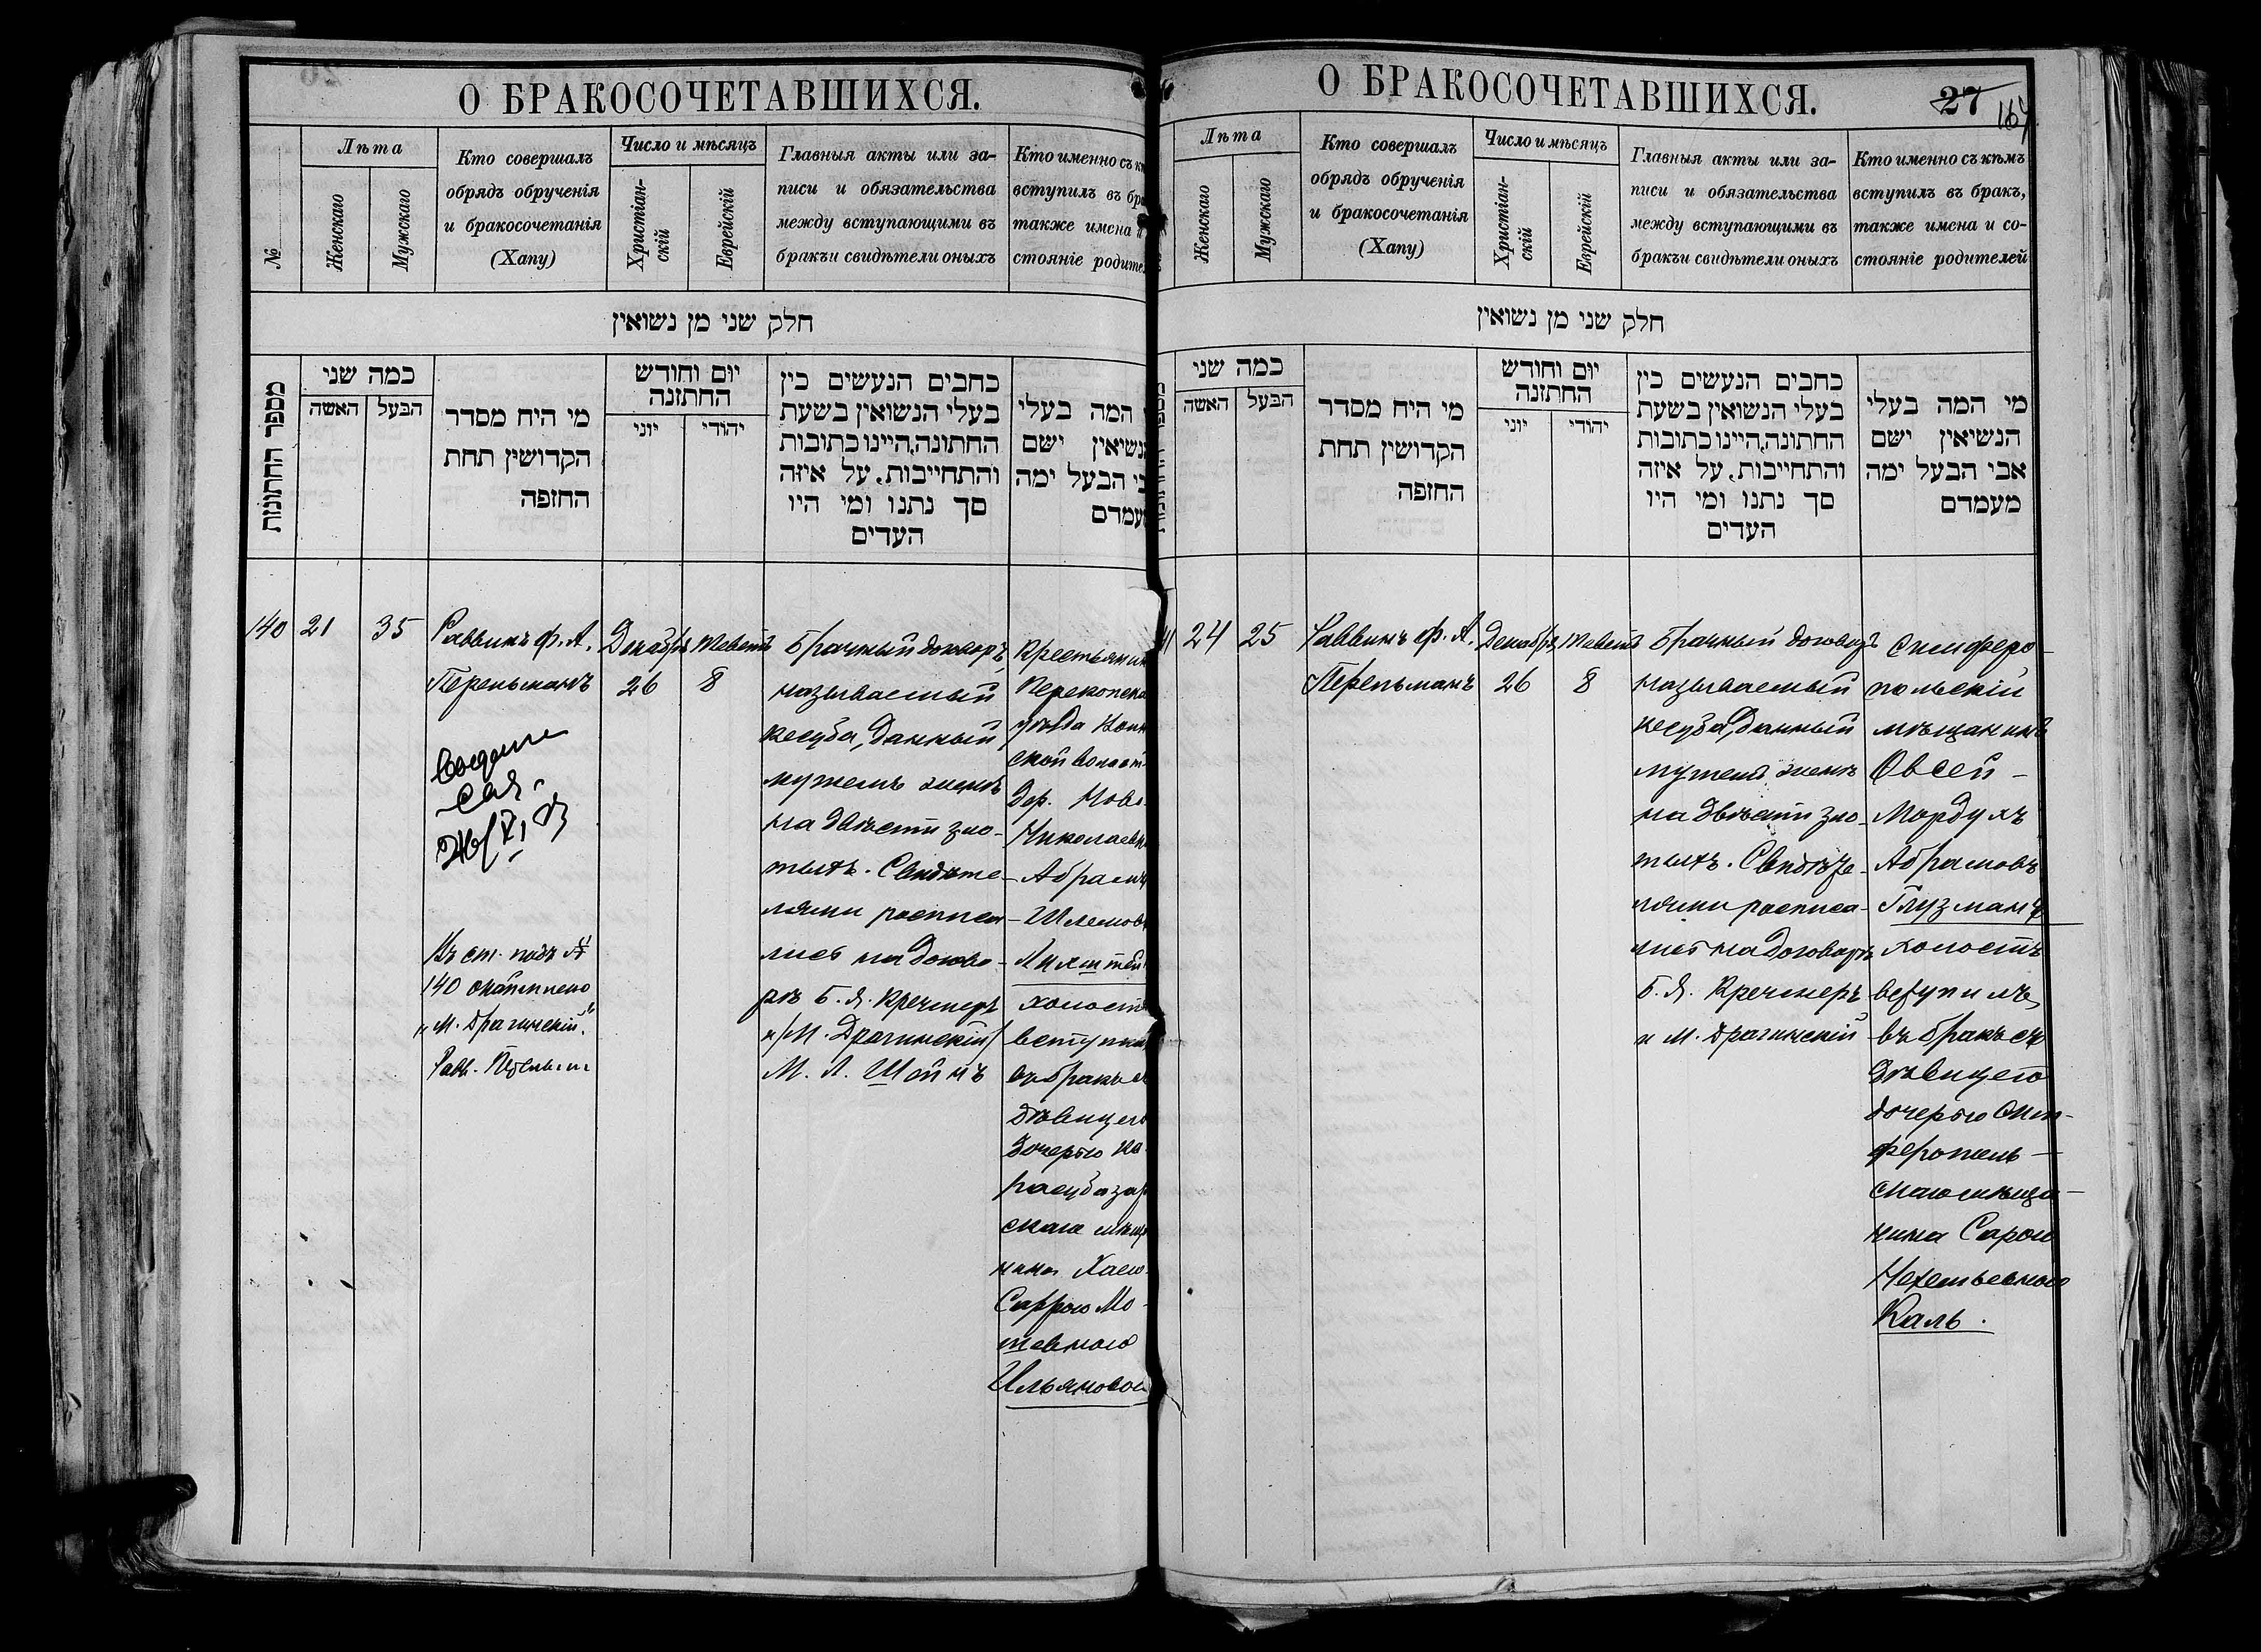 О БРАКОСОЧЕТАВШИХСЯ.
№
Лѣта
Женскаго
Мужскаго
Кто совершалъ
обрядъ обрученія
и бракосочетанія
(Хапу)
Число и мѣсяцъ
Христіан-
скій
Еврейскій
Главныя акты или за-
писи и обязательства
между вступающими въ
бракъи свидѣтели оныхъ
Кто именно съ
вступилъ въ
также имена
стояніе
חלק שני מן נשואין
מספר החתונות
כמה שני
האשה
הבעל
מי היח מסדר
הקדושין תחת
החזפה
יום וחודש
החתזנה
יוני
יהודי
כחבים הנעשים כין
בעלי הנשואין בשעת
החתונה,היינו כתובות
והתחייבות, על איזה
סך נתנו ומי היו
העדים
המה בעלי
ישם
הבעל ימה
140
21
35
Раввинъ Ф. А.
Перельманъ
Декабрь
26
Теветъ
8
Брачный договоръ,
называемый
кесуба, данный
мужемъ женѣ
на двѣсти зло-
тыхъ. Свидѣте-
лями росписа-
лись на догово-
рѣ Б. Я. Кречмеръ
и /М. Драгинскій/
М. Л. Шойнъ
уѣзда
дер. Ново-
Абрамъ
холостъ
вступилъ
въ бракъ
дѣвицею
дочерью Ка-
расубазар
скаго мѣща
нина Хаею-
Саррою Мо-
шевною
Ильяновой
Въ ст. подъ №
140
"М. Драгинскій".
Равв. Перельман
О БРАКОСОЧЕТАВШИХСЯ.
27
167
Лѣта
Женскаго
Мужскаго
Кто совершалъ
обрядъ обрученія
и бракосочетанія
(Хапу)
Число и мѣсяцъ
Христіан-
скій
Еврейскій
Главныя акты или за-
писи и обязательства
между вступающими въ
бракъи свидѣтели оныхъ
Кто именно съ кѣмъ
вступилъ въ бракъ,
также имена и со-
стояніе родителей
חלק שני מן נשואין
כמה שני
האשה
הבעל
מי היח מסדר
הקדושין תחת
החזפה
יום וחודש
החתזנה
יוני
יהודי
כחבים הנעשים כין
בעלי הנשואין בשעת
החתונה,היינו כתובות
והתחייבות, על איזה
סך נתנו ומי היו
העדים
מי המה בעלי
הנשיאין ישם
אבי הבעל ימה
מעמדם
24
25
Раввинъ Ф. А.
Перельманъ
Декабрь
26
Теветъ
8
Брачный договоръ
называемый
кесуба, данный
мужемъ женѣ
на двѣсти зло-
тыхъ. Свидѣте-
лями росписа-
лись на договорѣ
Б. Я. Кречмеръ
и М. Драгинскій
Симферо-
польскій
мѣщанинъ
Овсей-
Мордухъ
Абрамовъ
Глузманъ
холостъ
вступилъ
въ бракъ съ
дѣвицею
дочерью Сим-
ферополь-
скаго мѣща-
нина Сарою
Нехемьевною
Каль.